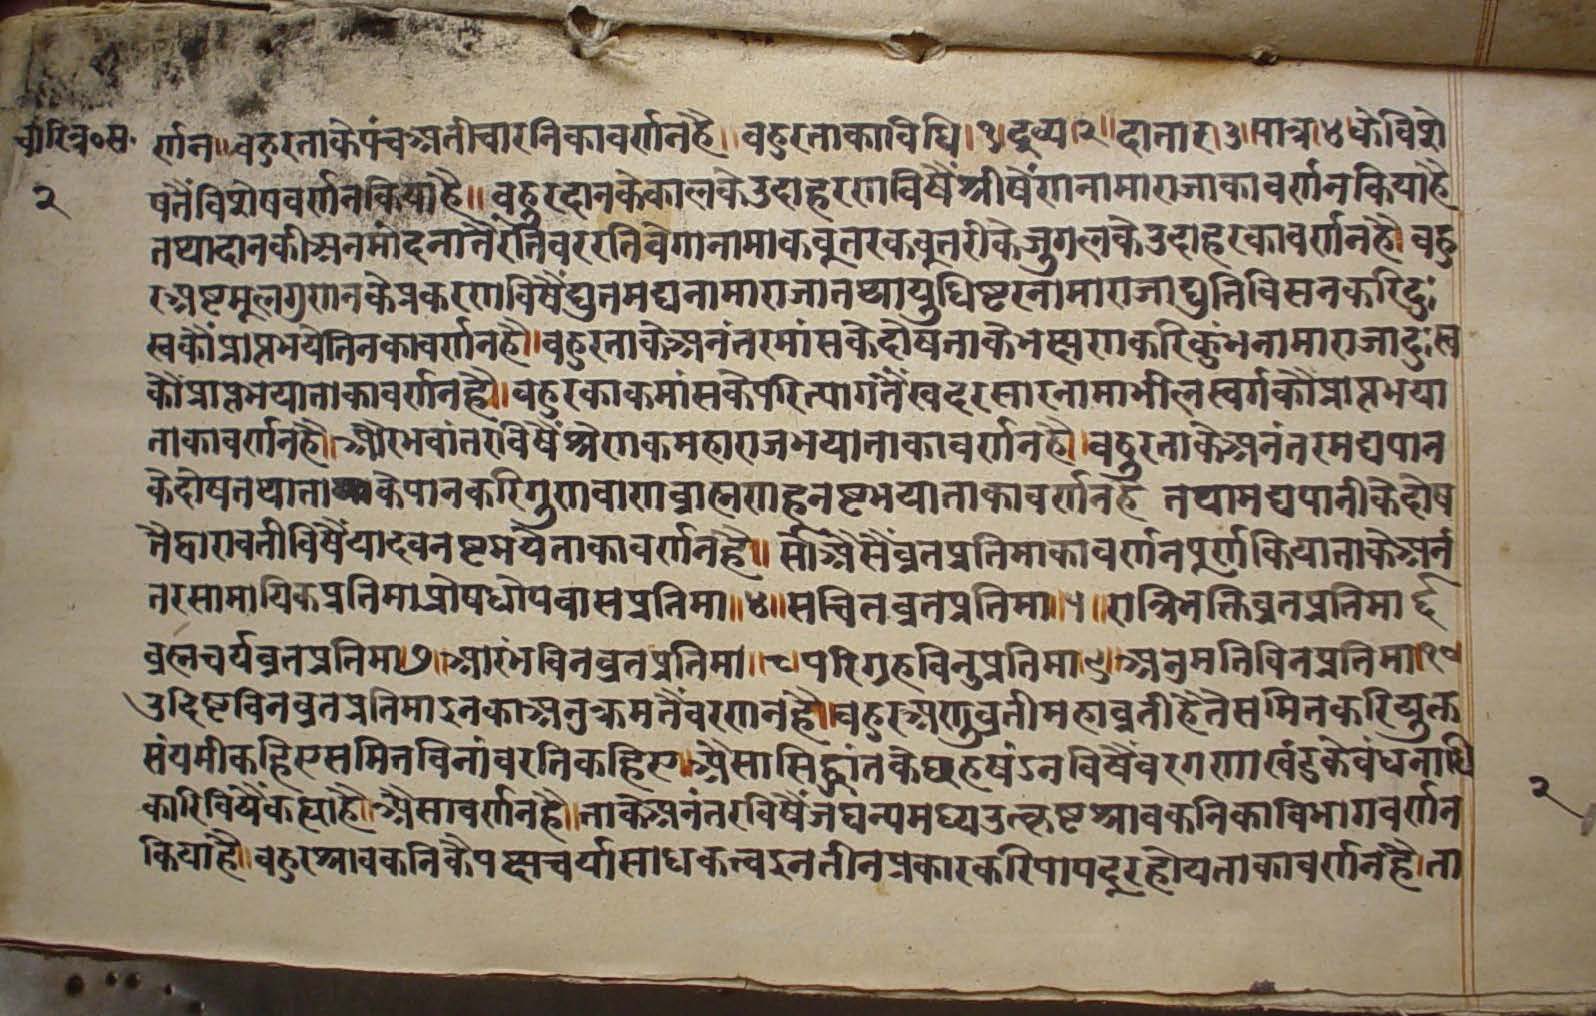 चारित्र०स.
२
र्णन॥बहुरताकेपंचअतीचारनिकावर्णनहै॥बहुरताकाविधि।१।द्रव्य।२॥दातार।३।पात्र।४।केविशे
षतैंविशेषवर्णनकियाहै॥बहुरदानकेकालकेउदाहरणविषैंश्रीषेंणनामाराजाकावर्णनकियाहै
तथादानकीअनमोदनातैंरतिवररतिवेगानामाकबूतरकबूतरीकैजुगलकैउदाहरकावर्णनहै।बहु
रअष्टमूलगुणनकेप्रकरणविषैंद्युतमद्यनामाराजातथायुधिष्टरनामाराजाद्युतिविसनकरिदुः
खकौंप्राप्तभयेतिनकावर्णनहै॥बहुरताकेअनंतरमांसकैदोषताकैभक्षणकरिकुंभनामाराजादुःख
कौंप्राप्तभयाताकावर्णनहै॥बहुरकाकमांसकैपरित्यागतैंखदरसारनामाभीलस्वर्गकौंप्राप्तभया
ताकावर्णनहै।औरभवांतरविषैंश्रेणाकमहाराजभयाताकावर्णनहै।बहुरताकेअनंतरमद्यपान
कैदोषतथाताकैपानकरिगुणवाणब्राह्मणहनष्टभयाताकावर्णनहै तथामद्यपानीकैदोष
तैद्वारावतीविषैंयादवनष्टभयैताकावर्णनहै॥सोअैसैंव्रतप्रतिमाकावर्णनपूर्णकियाताकैअनं
तरसामायिकप्रतिमाप्रोषधोपवासप्रतिमा॥४॥सचितव्रतप्रतिमा।५॥रात्रिभक्तिव्रतप्रतिमा६
ब्रह्मचर्यव्रतप्रतिमा७॥आरंभविनव्रतप्रतिमा।८।परिगृहविनुप्रतिमा९।अनुमतिविनप्रतिमा।१०
उदिष्टविनव्रतप्रतिमाऽनकाअनुक्रमतैंवरणनहै॥बहुरअणुव्रतीमहाव्रतीहैतैसमितकरियुक्त
संयमीकहिएसमितविनांवरतिकहिए।अैसासिद्धांतकैघरहषंऽनविषैंवरगणाखंडकेबंधनाधि
कारिविषैंकह्याहै।अैसावर्णनहै।ताकेअनंतरविषैंजघंन्यमध्यउत्कृष्टश्रावकनिकाविभागवर्णन
कियाहै॥बहुरश्रावकनिकैपक्षचर्यासाधकत्वऽनतीनप्रकारकरिपापदूरहोयताकावर्णनहै।ता
२